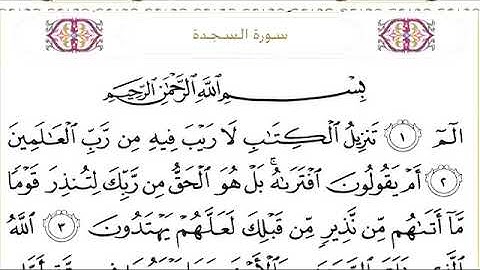 سورة السجدة
بِسْمِ اللَّهِ الرَّحْمَٰنِ الرَّحِيمِ
الٓمٓ ١ تَنزِيلُ الْكِتَابِ لَا رَيْبَ فِيهِ مِن رَّبِّ الْعَالَمِينَ
٢ أَمْ يَقُولُونَ افْتَرَاهُ ۚ بَلْ هُوَ الْحَقُّ مِن رَّبِّكَ لِتُنذِرَ قَوْمًا
مَّا أَتَاهُم مِّن نَّذِيرٍ مِّن قَبْلِكَ لَعَلَّهُمْ يَهْتَدُونَ ٣ اللَّهُ